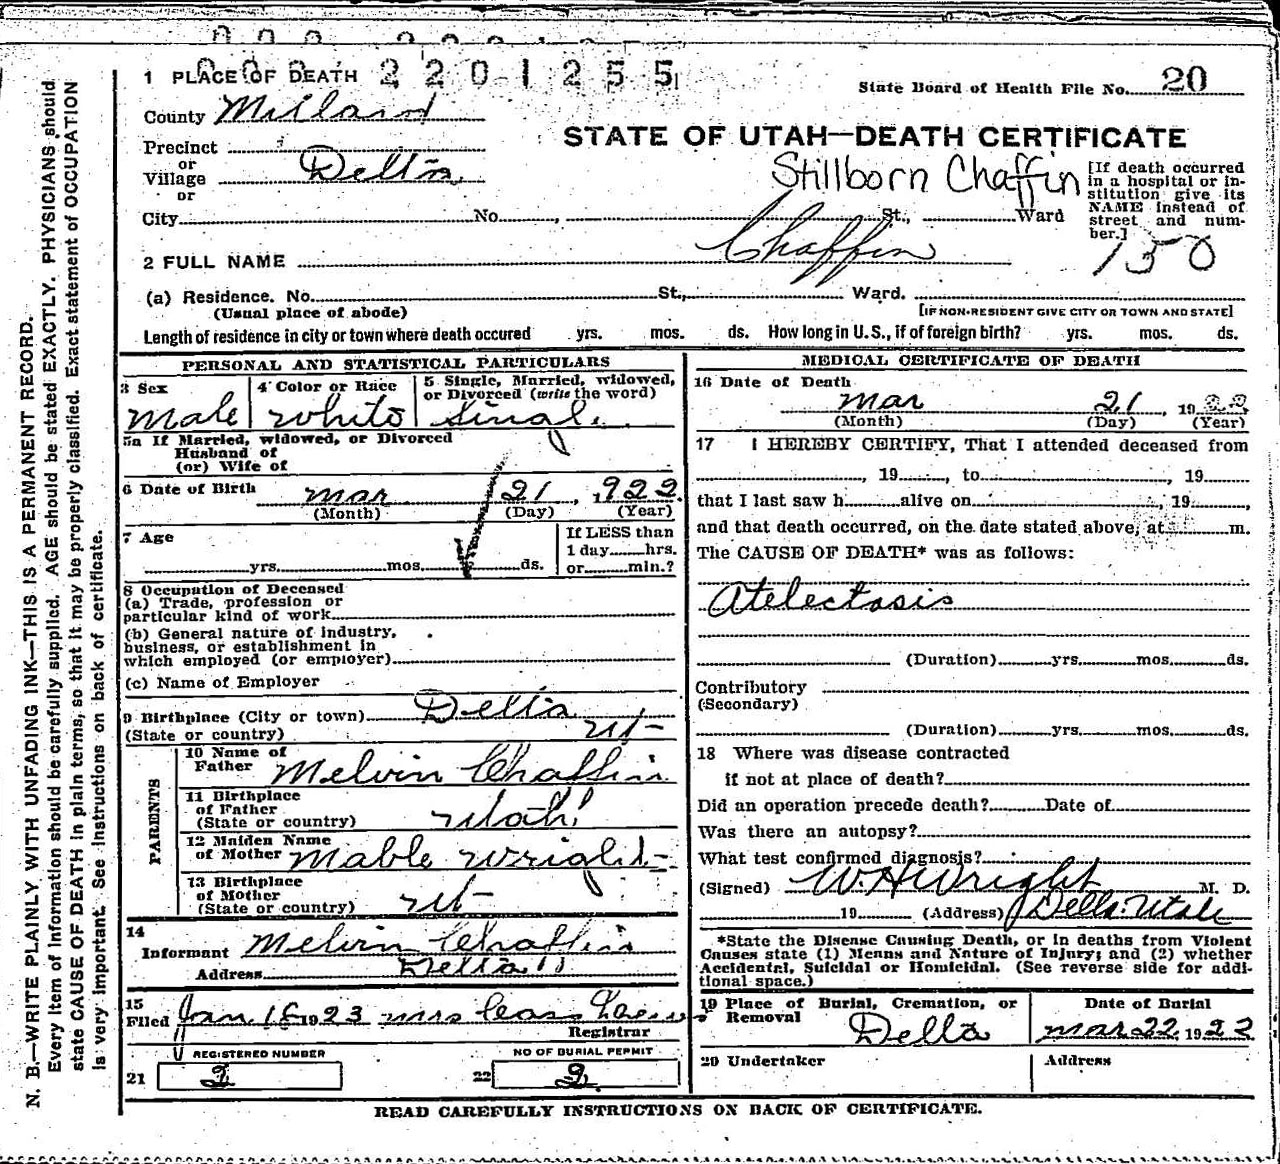 N. B.—WRITE PLAINLY WITH UNFADING INK—THIS IS A PERMANENT RECORD.
Every item of information should be carefully supplied. AGE should be stated EXACTLY. PHYSICIANS should
state CAUSE OF DEATH in plain terms, so that it may be properly classified. Exact statement of OCCUPATION
is very important. See instructions on back of certificate.
2201255
1 PLACE OF DEATH
State Board of Health File No. 20
County Millard
STATE OF UTAH—DEATH CERTIFICATE
Precinct
or
Village Delta
or
Stillborn Chaffin
[If death occurred
in a hospital or in-
stitution give its
NAME instead of
street and num-
ber.]
City No. , St., Ward
150
2 FULL NAME Chaffin
(a) Residence. No. St., Ward.
(Usual place of abode) [IF NON-RESIDENT GIVE CITY OR TOWN AND STATE]
Length of residence in city or town where death occured yrs. mos. ds. How long in U.S., if of foreign birth? yrs. mos. ds.
PERSONAL AND STATISTICAL PARTICULARS
3 Sex
Male
4 Color or Race
White
5 Single, Married, widowed,
or Divorced (write the word)
Single
5a If Married, widowed, or Divorced
Husband of
(or) Wife of
6 Date of Birth Mar 21, 1922
(Month) (Day) (Year)
7 Age
yrs. mos. ds.
If LESS than
1 day hrs.
or min.?
8 Occupation of Deceased
(a) Trade, profession or
particular kind of work
(b) General nature of industry,
business, or establishment in
which employed (or employer)
(c) Name of Employer
9 Birthplace (City or town) Delta
(State or country) Ut
PARENTS
10 Name of
Father Melvin Chaffin
11 Birthplace
of Father
(State or country) Utah
12 Maiden Name
of Mother Mable Wright
13 Birthplace
of Mother
(State or country) Ut
14
Informant Melvin Chaffin
Address Delta
15
Filed Jan 1923 Mrs
Registrar
REGISTERED NUMBER
21 2
NO OF BURIAL PERMIT
22 2
MEDICAL CERTIFICATE OF DEATH
16 Date of Death
Mar 21, 1922
(Month) (Day) (Year)
17 I HEREBY CERTIFY, That I attended deceased from
, 19 , to , 19
that I last saw h alive on 19
and that death occurred, on the date stated above, at m.
The CAUSE OF DEATH* was as follows:
Atelectasis
(Duration) yrs. mos. ds.
Contributory
(Secondary)
(Duration) yrs. mos. ds.
18 Where was disease contracted
if not at place of death?
Did an operation precede death? Date of
Was there an autopsy?
What test confirmed diagnosis?
(Signed) W. H Wright M. D.
19 (Address) Delta. Utah
*State the Disease Causing Death, or in deaths from Violent
Causes state (1) Menns and Nature of Injury; and (2) whether
Accidental, Suicidal or Homicidal. (See reverse side for addi-
tional space.)
19 Place of Burial, Cremation, or
Removal Delta
Date of Burial
Mar 22, 1922
20 Undertaker
Address
READ CAREFULLY INSTRUCTIONS ON BACK OF CERTIFICATE.